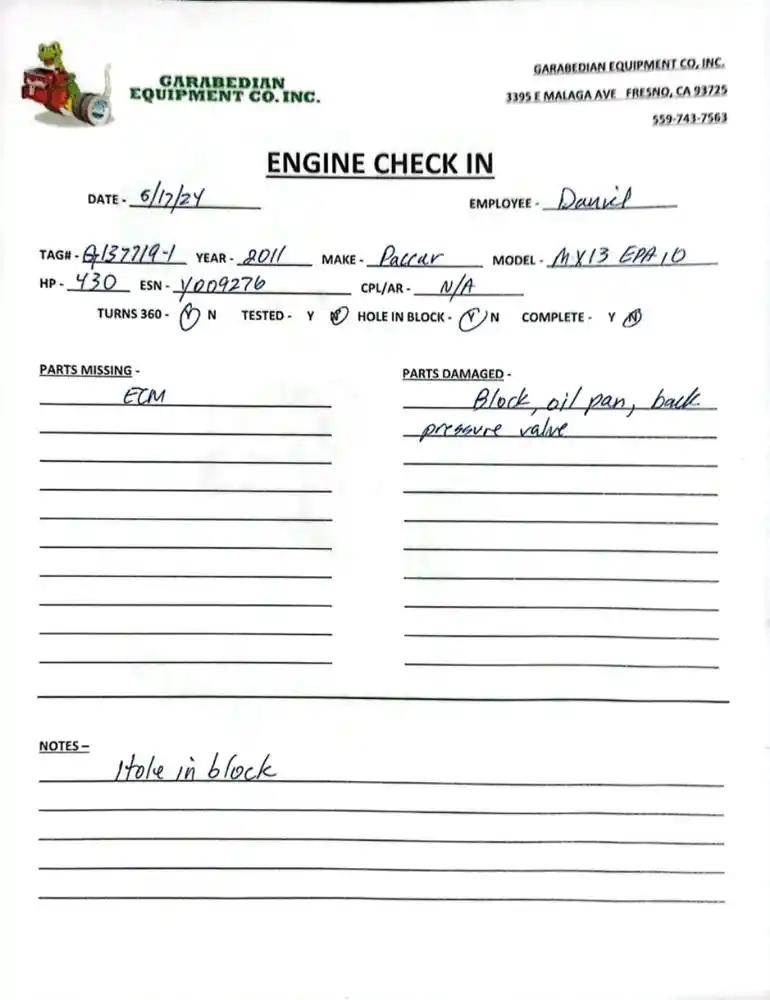 GARABEDIAN
EQUIPMENT CO. INC.
GARABEDIAN EQUIPMENT CO, INC.
3395 E MALAGA AVE FRESNO, CA 93725
559-743-7563
ENGINE CHECK IN
DATE - 5/17/24 EMPLOYEE - Daniel
TAG# - G137719-1 YEAR - 2011 MAKE - Paccar MODEL - MX13 EPA10
HP - 430 ESN - Y009276 CPL/AR - N/A
TURNS 360 - Y N TESTED - Y N HOLE IN BLOCK - Y N COMPLETE - Y N
PARTS MISSING - PARTS DAMAGED -
ECM Block, oil pan, back
pressure valve
NOTES –
Hole in block